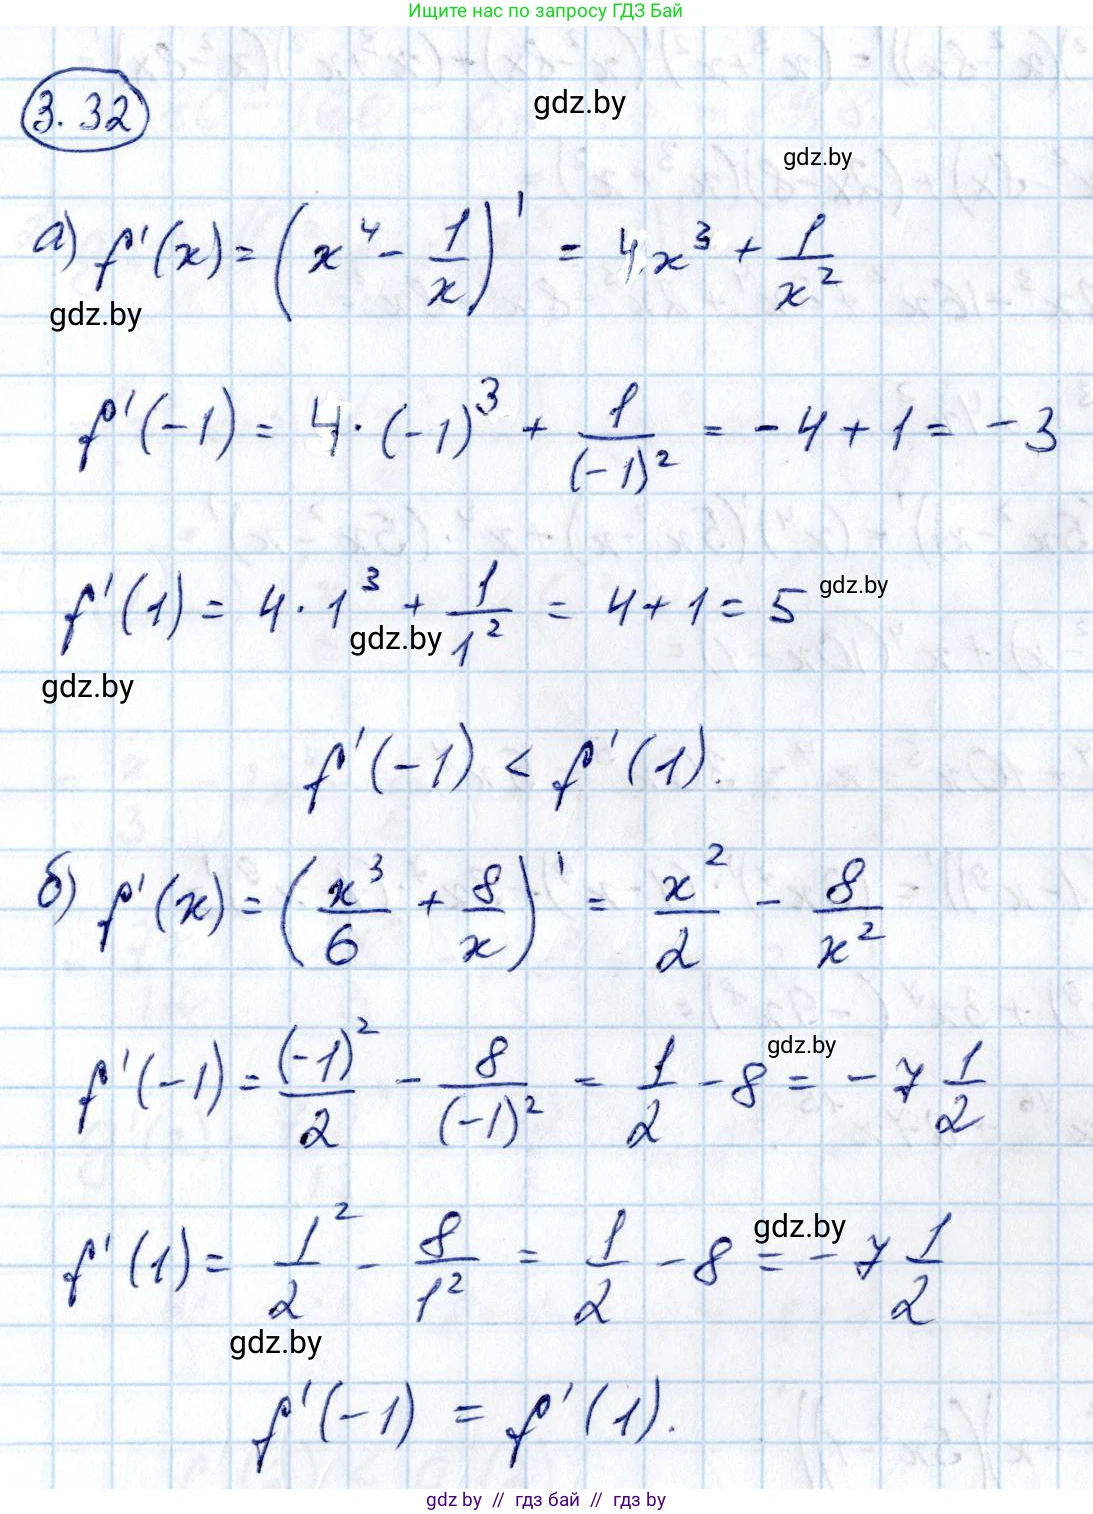 Ищите нас по запросу ГДЗ Бай
3.32
gdz.by
gdz.by
а) f'(x) = (x⁴ - 1/x)' = 4x³ + 1/x²
gdz.by
f'(-1) = 4·(-1)³ + 1/(-1)² = -4+1 = -3
f'(1) = 4·1³ + 1/1² = 4+1 = 5
gdz.by
gdz.by
gdz.by
f'(-1) < f'(1).
б) f'(x) = (x³/6 + 8/x)' = x²/2 - 8/x²
gdz.by
f'(-1) = (-1)²/2 - 8/(-1)² = 1/2 - 8 = -7 1/2
f'(1) = 1²/2 - 8/1² = 1/2 - 8 = -7 1/2
gdz.by
gdz.by
f'(-1) = f'(1).
gdz by // гдз бай // гдз by